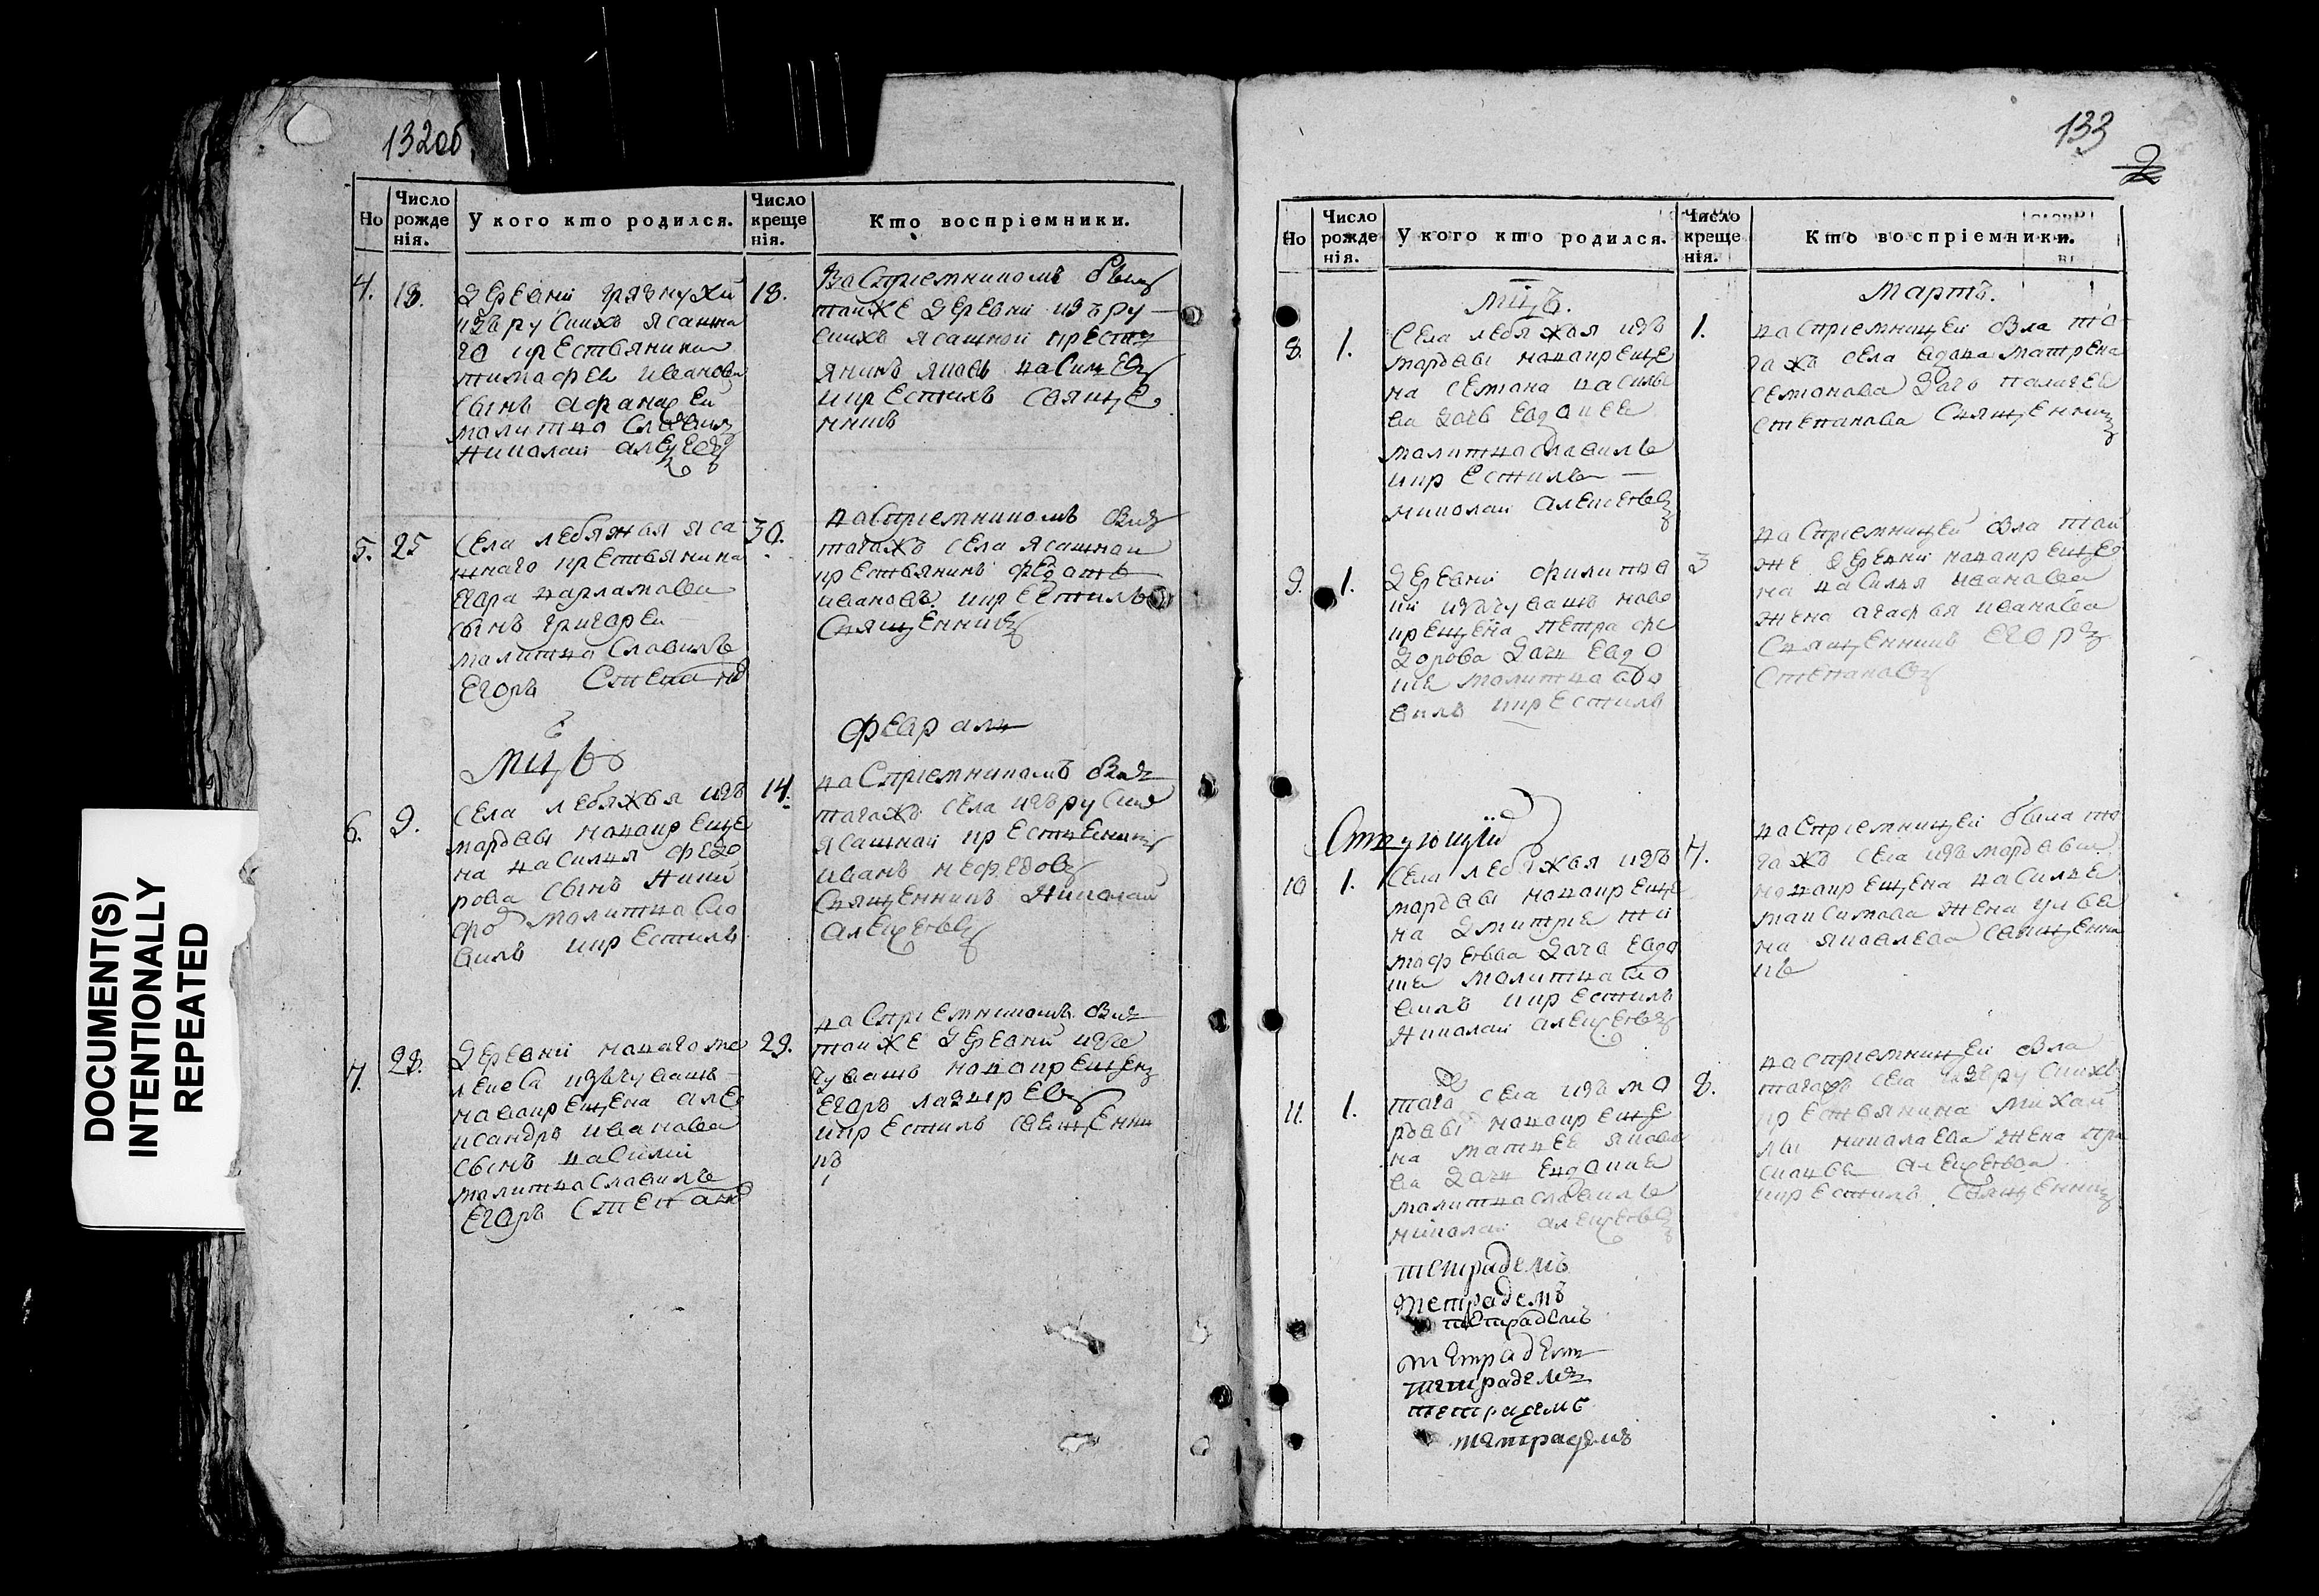 132об
Но
Число рожденія.
У кого кто родился.
Число крещенія.
Кто воспріемники.
4.
18.
деревни грязнухи
изъ рускихъ ясашна
го крестьянина
тимафея иванова
сынъ афанасеи
малитво славилъ
николаи алексеевъ
18.
васприемникомъ былъ
тоиже деревни изъ ру
скихъ ясашнои кресть
янинъ яковъ васильевъ
крестилъ свяще
нникъ
5.
25
села лебяжья яса
шнаго крестьянина
егора варламова
сынъ григореи
малитво славилъ
егоръ степановъ
30.
васприемникомъ былъ
тагожъ села ясашнои
крестьянинъ федотъ
ивановъ. крестилъ
священникъ
мцъ
феврали
6.
9.
села лебяжья изъ
мардвы новокреще
на василья федо
рова сынъ ники
фо малитва сла
вилъ крестилъ
14.
васприемникомъ былъ
тагожъ села изъ руских
ясашнои крестьенинъ
иванъ нефедовъ
священникъ николаи
алексеевъ
7.
28.
деревни новаго ме
изъ чувашъ
новокрещена алек
сандра иванова
сынъ василии
малитва славилъ
егоръ степанов
29.
васприемникомъ былъ
тоиже деревни изъ
чувашъ новокрещенъ
егоръ лазаревъ
крестилъ священни
къ
DOCUMENT(S)
INTENTIONALLY
REPEATED
133
2
Но
Число рожденія.
У кого кто родился.
Число крещенія.
Кто воспріемники.
мцъ.
Мартъ.
8.
1.
села лебяжья изъ
мардвы новокреще
на семена василье
ва дачь евдокея
малитва славилъ
крестилъ
николаи алексеевъ
1.
васприемницеи была та
гожъ села вдова матрена
семонова
степанова священникъ
9.
1.
деревни филипов
ки изъ чувашъ ново
крещена петра фе
дорова дачь евдо
кея малитва сла
вилъ крестилъ
3
васприемницеи была тои
же деревни новокреще
на василья иванова
жена агафья иванова
священникъ егоръ
степановъ
10
1.
села лебяжья изъ
мардвы новокреще
на дмитрия ти
мофеева дачь евдо
кея малитва сла
вилъ крестилъ
николаи алексеевъ
7.
васприемницеи была та
гожъ села изъ мардвы
новокрещена василия
максимова жена улья
на яковлева священни
къ
11.
1.
таго села изъ мо
рдвы новокреще
на матвея якова
ва дачь евдокия
малитва славилъ
николаи алексеевъ
8.
васприемницеи была
тагожъ села изъ рускихъ
крестьянина михаи
лы николаева жена пра
сковья алексеева
крестилъ священникъ
тетрадемъ
тетрадемъ
тетрадемъ
тетрадемъ
тетрадемъ
тетрадемъ
тетрадемъ